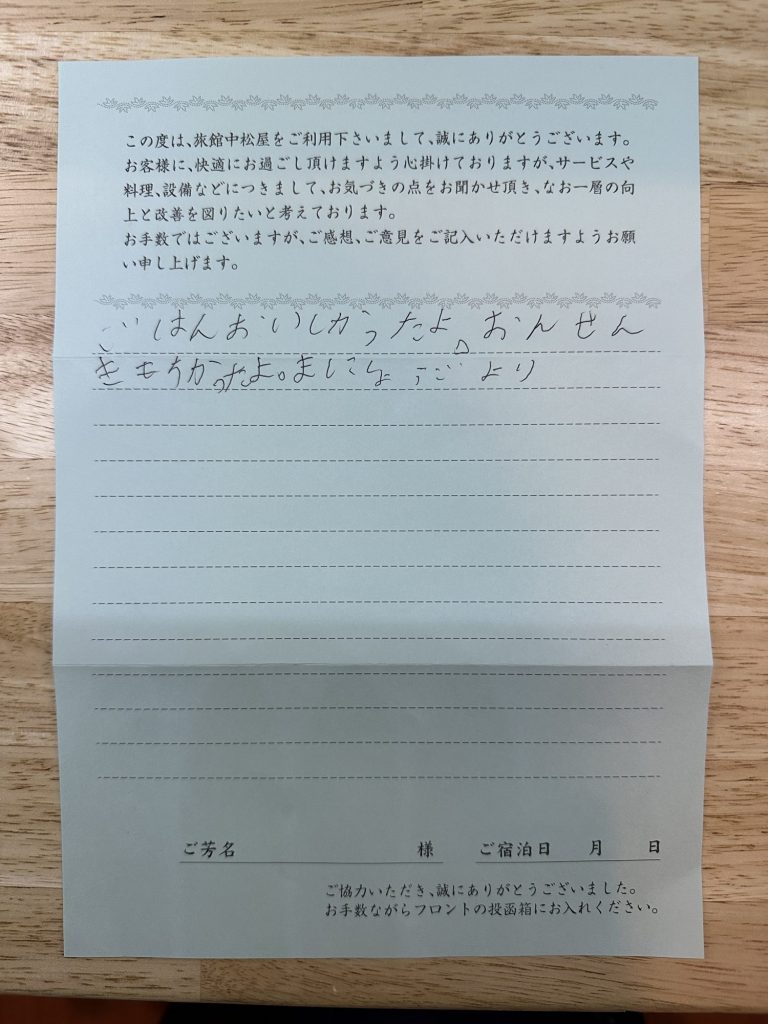 この度は、旅館中松屋をご利用下さいまして、誠にありがとうございます。
お客様に、快適にお過ごし頂けますよう心掛けておりますが、サービスや
料理、設備などにつきまして、お気づきの点をお聞かせ頂き、なお一層の向
上と改善を図りたいと考えております。
お手数ではございますが、ご感想、ご意見をご記入いただけますようお願
い申し上げます。
ごはんおいしかったよ。おんせん
きもちかったよ。まにょ より
ご芳名 様 ご宿泊日 月 日
ご協力いただき、誠にありがとうございました。
お手数ながらフロントの投函箱にお入れください。